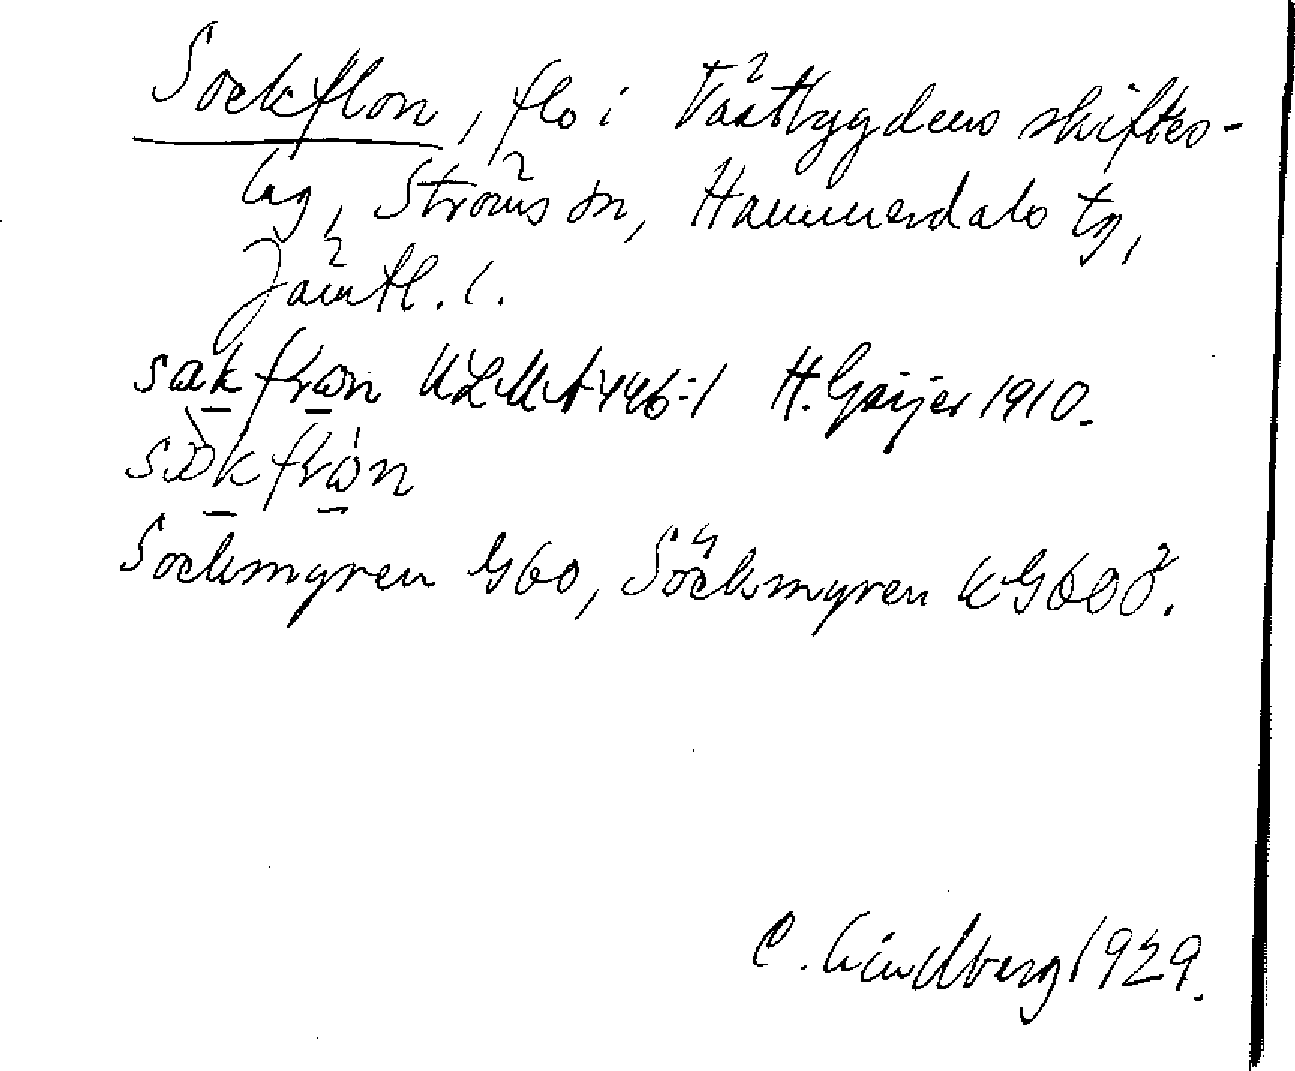 Sockflon, flo i Västbygdens skiftes-
lag, Ströms sn, Hammerdals tg,
Jämtl. l.
sakfron ULMA 446:1 H. Geijer 1910.
Sockmyren G60, Söckmyren KG60Ö.
C. Lindberg 1929.